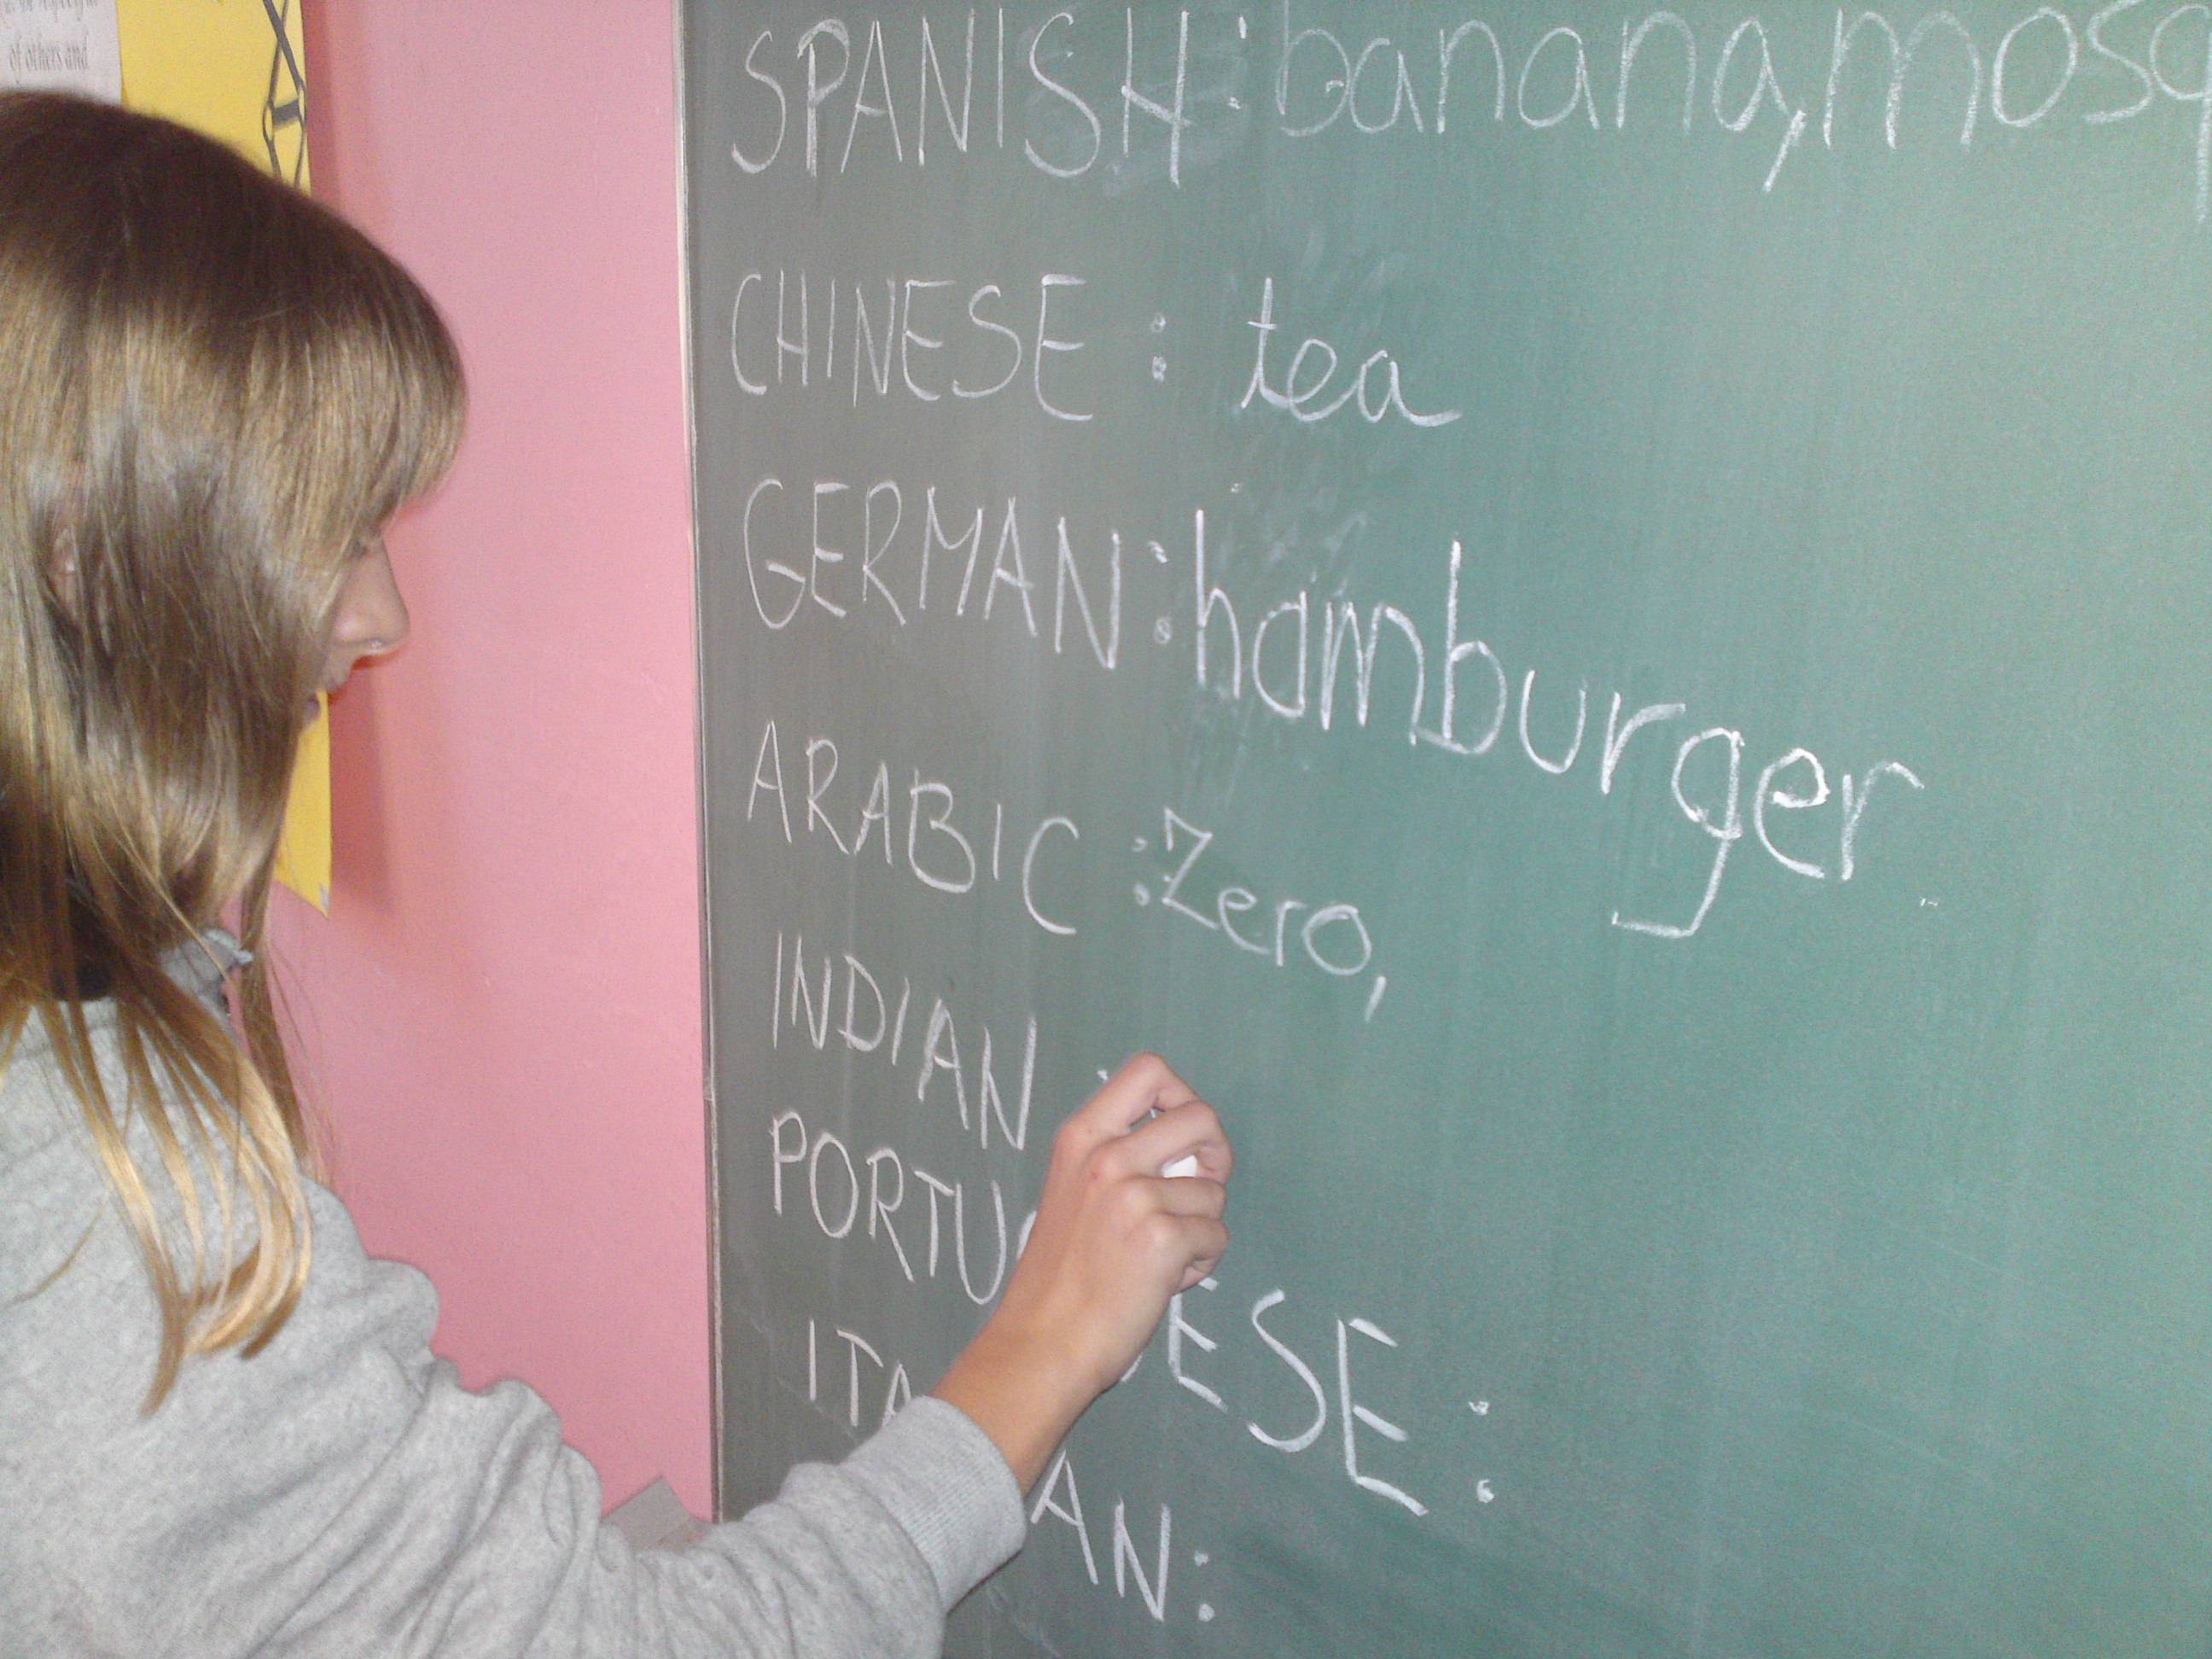 of others and
SPANISH: banana, mosq
CHINESE: tea
GERMAN: hamburger
ARABIC: Zero,
INDIAN
PORTUGUESE:
ITALIAN: